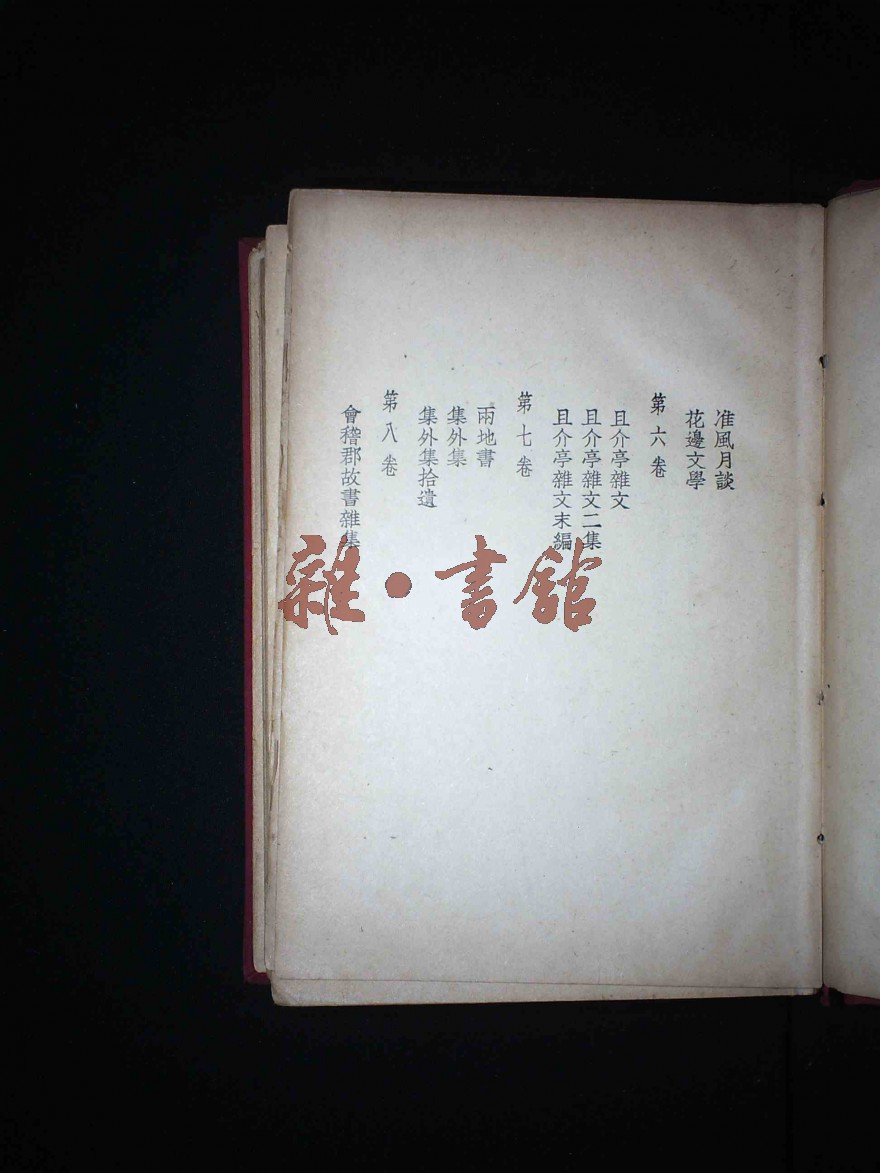 准風月談
花邊文學
第六卷
且介亭雜文
且介亭雜文二集
且介亭雜文末編
第七卷
兩地書
集外集
集外集拾遺
第八卷
會稽郡故書雜集
雜·書館